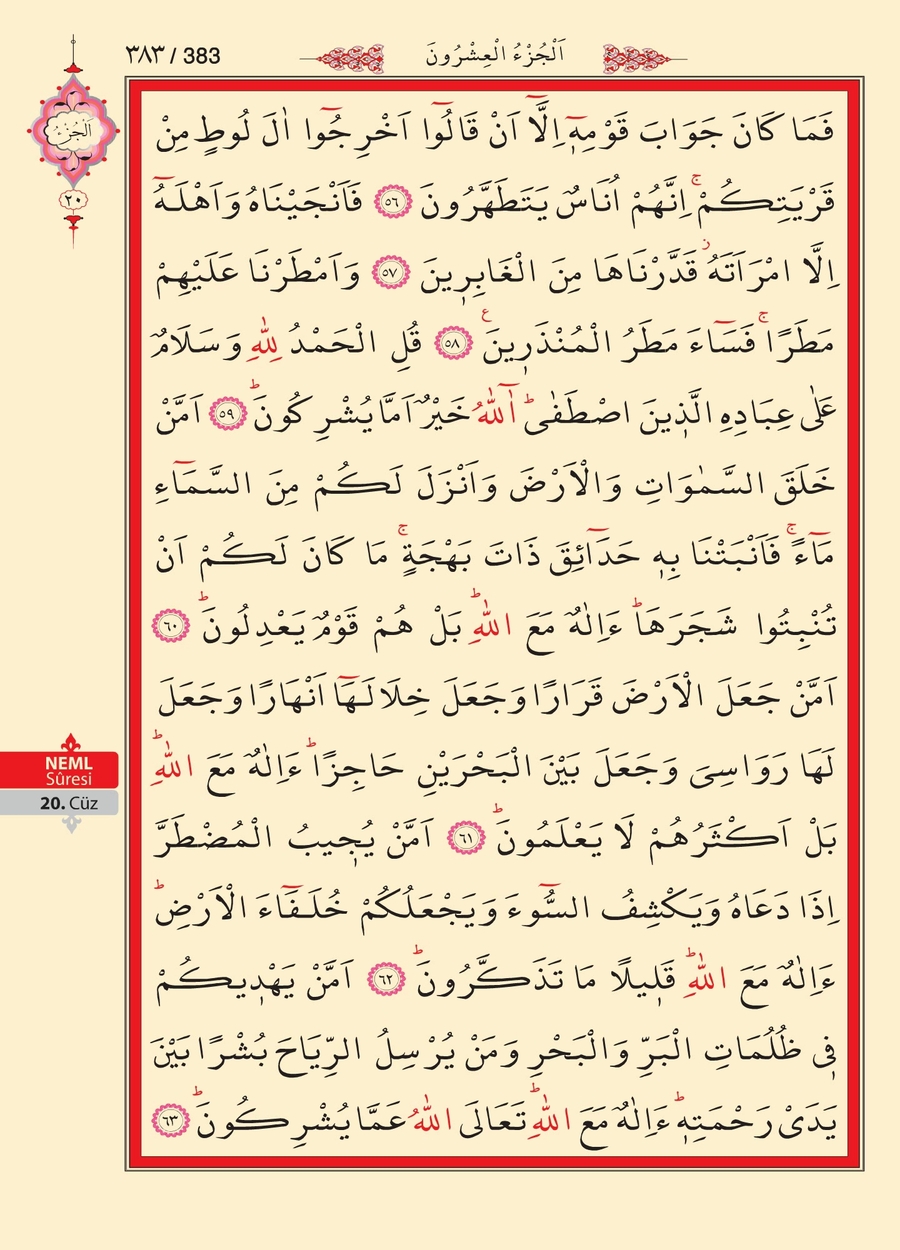 ٣٨٣ / 383
اَلْجُزْءُ الْعِشْرُونَ
اَلْجُزْءُ
٢٠
فَمَا كَانَ جَوَابَ قَوْمِهٖٓ اِلَّٓا اَنْ قَالُٓوا اَخْرِجُٓوا اٰلَ لُوطٍ مِنْ
قَرْيَتِكُمْۚ اِنَّهُمْ اُنَاسٌ يَتَطَهَّرُونَ ﴿٥٦﴾ فَاَنْجَيْنَاهُ وَاَهْلَهُٓ
اِلَّا امْرَاَتَهُۘ قَدَّرْنَاهَا مِنَ الْغَابِرٖينَ ﴿٥٧﴾ وَاَمْطَرْنَا عَلَيْهِمْ
مَطَرًاۚ فَسَٓاءَ مَطَرُ الْمُنْذَرٖينَ ع ﴿٥٨﴾ قُلِ الْحَمْدُ لِلّٰهِ وَسَلَامٌ
عَلٰى عِبَادِهِ الَّذٖينَ اصْطَفٰىؕ آٰللّٰهُ خَيْرٌ اَمَّا يُشْرِكُونَؕ ﴿٥٩﴾ اَمَّنْ
خَلَقَ السَّمٰوَاتِ وَالْاَرْضَ وَاَنْزَلَ لَكُمْ مِنَ السَّمَٓاءِ
مَٓاءًۚ فَاَنْبَتْنَا بِهٖ حَدَٓائِقَ ذَاتَ بَهْجَةٍۚ مَا كَانَ لَكُمْ اَنْ
تُنْبِتُوا شَجَرَهَاؕ ءَاِلٰهٌ مَعَ اللّٰهِؕ بَلْ هُمْ قَوْمٌ يَعْدِلُونَؕ ﴿٦٠﴾
اَمَّنْ جَعَلَ الْاَرْضَ قَرَارًا وَجَعَلَ خِلَالَهَٓا اَنْهَارًا وَجَعَلَ
لَهَا رَوَاسِيَ وَجَعَلَ بَيْنَ الْبَحْرَيْنِ حَاجِزًاؕ ءَاِلٰهٌ مَعَ اللّٰهِؕ
بَلْ اَكْثَرُهُمْ لَا يَعْلَمُونَؕ ﴿٦١﴾ اَمَّنْ يُجٖيبُ الْمُضْطَرَّ
اِذَا دَعَاهُ وَيَكْشِفُ السُّٓوءَ وَيَجْعَلُكُمْ خُلَفَٓاءَ الْاَرْضِؕ
ءَاِلٰهٌ مَعَ اللّٰهِؕ قَلٖيلًا مَا تَذَكَّرُونَؕ ﴿٦٢﴾ اَمَّنْ يَهْدٖيكُمْ
فٖي ظُلُمَاتِ الْبَرِّ وَالْبَحْرِ وَمَنْ يُرْسِلُ الرِّيَاحَ بُشْرًا بَيْنَ
يَدَيْ رَحْمَتِهٖؕ ءَاِلٰهٌ مَعَ اللّٰهِؕ تَعَالَى اللّٰهُ عَمَّا يُشْرِكُونَؕ ﴿٦٣﴾
NEML
Sûresi
20. Cüz